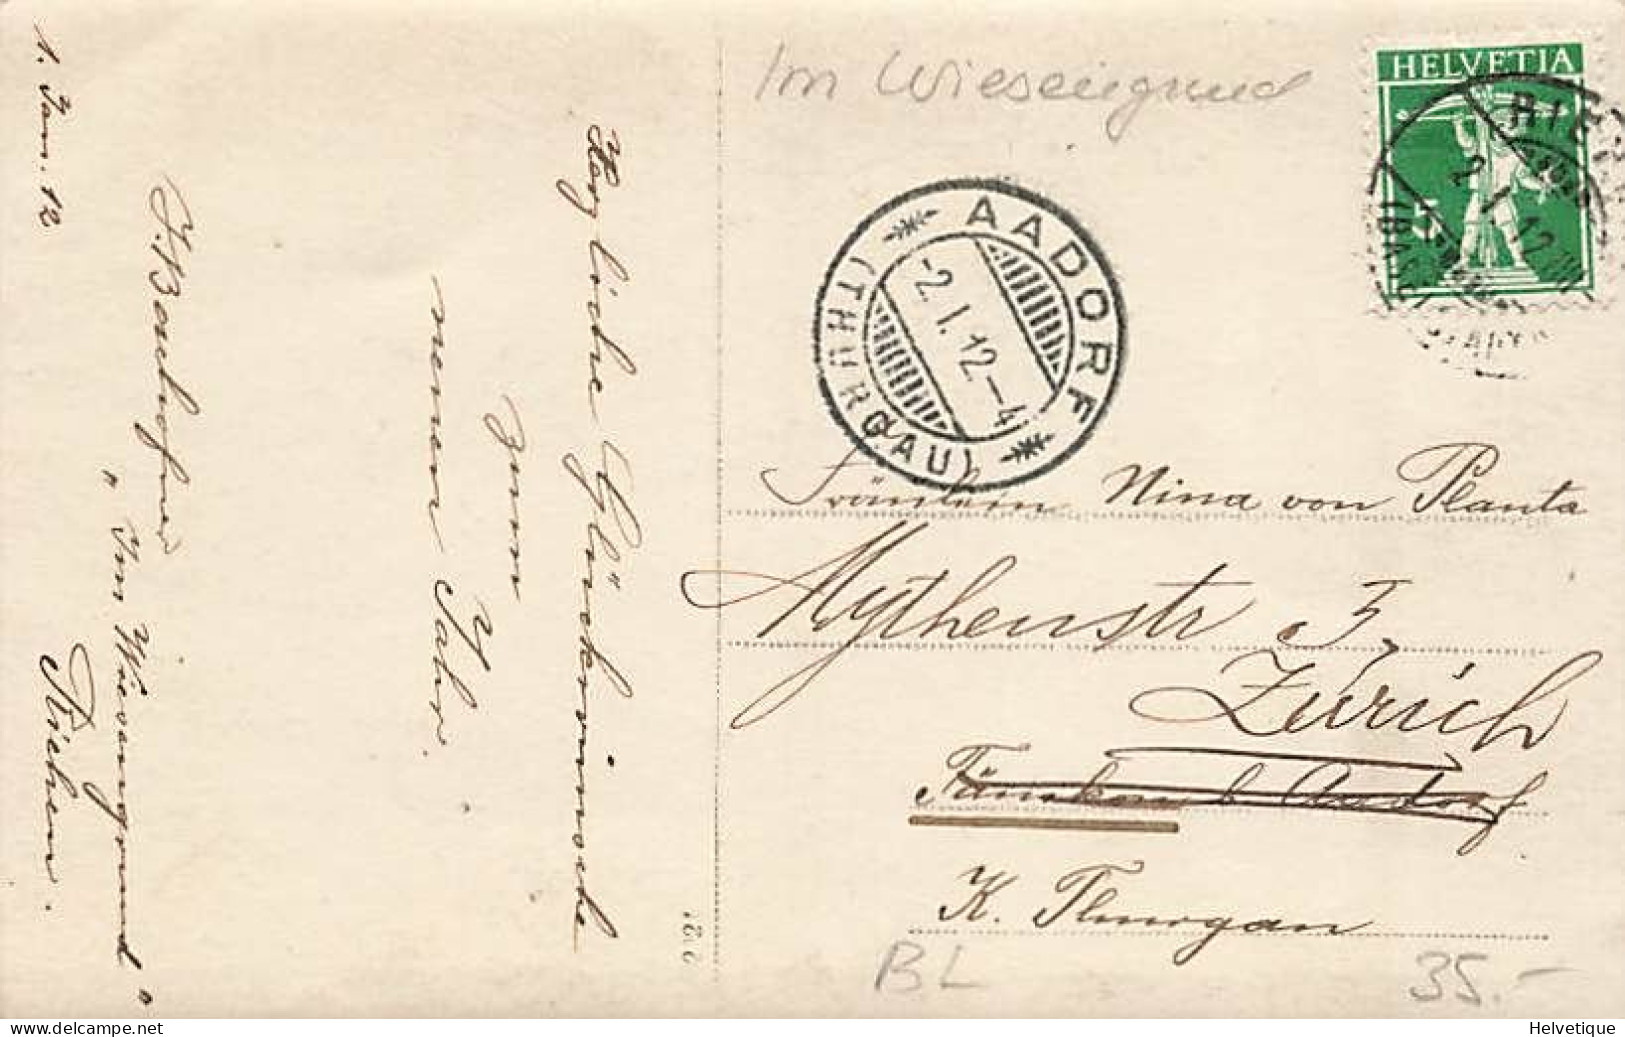 1. Jan. 12
Herzliche Glückwünsche
zum
neuen Jahr.
J. Bachofner
"Im Wiesengrund"
Riehen.
Im Wiesengrund
HELVETIA
5
RIEHEN
2.I.12
AADORF
-2.I.12-4
(THURGAU)
Fräulein Nina von Planta
Mythenstr 3,
Zürich
b. Aadorf
K. Thurgau
BL
35.-
delcampe.net
Helvetique